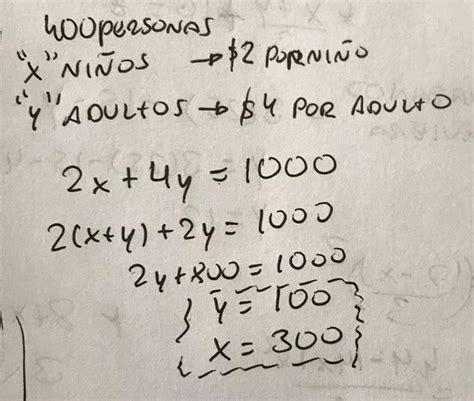 400 PERSONAS
"X" NIÑOS → $2 POR NIÑO
"Y" ADULTOS → $4 POR ADULTO
2x + 4y = 1000
2(x+y) + 2y = 1000
2y + 800 = 1000
y = 100
x = 300